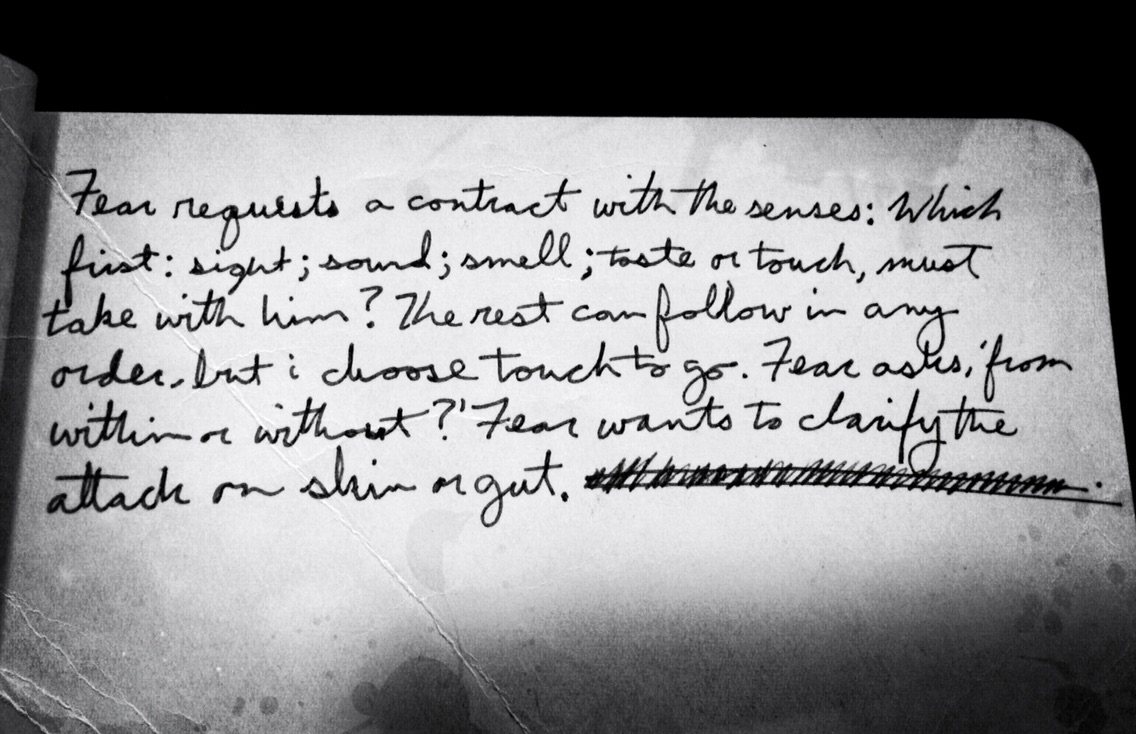 Fear requests a contract with the senses: Which
first: sight; sound; smell; taste or touch, must
take with him? The rest can follow in any
order, but i choose touch to go. Fear asks, 'from
within or without?' Fear wants to clarify the
attack on skin or gut.